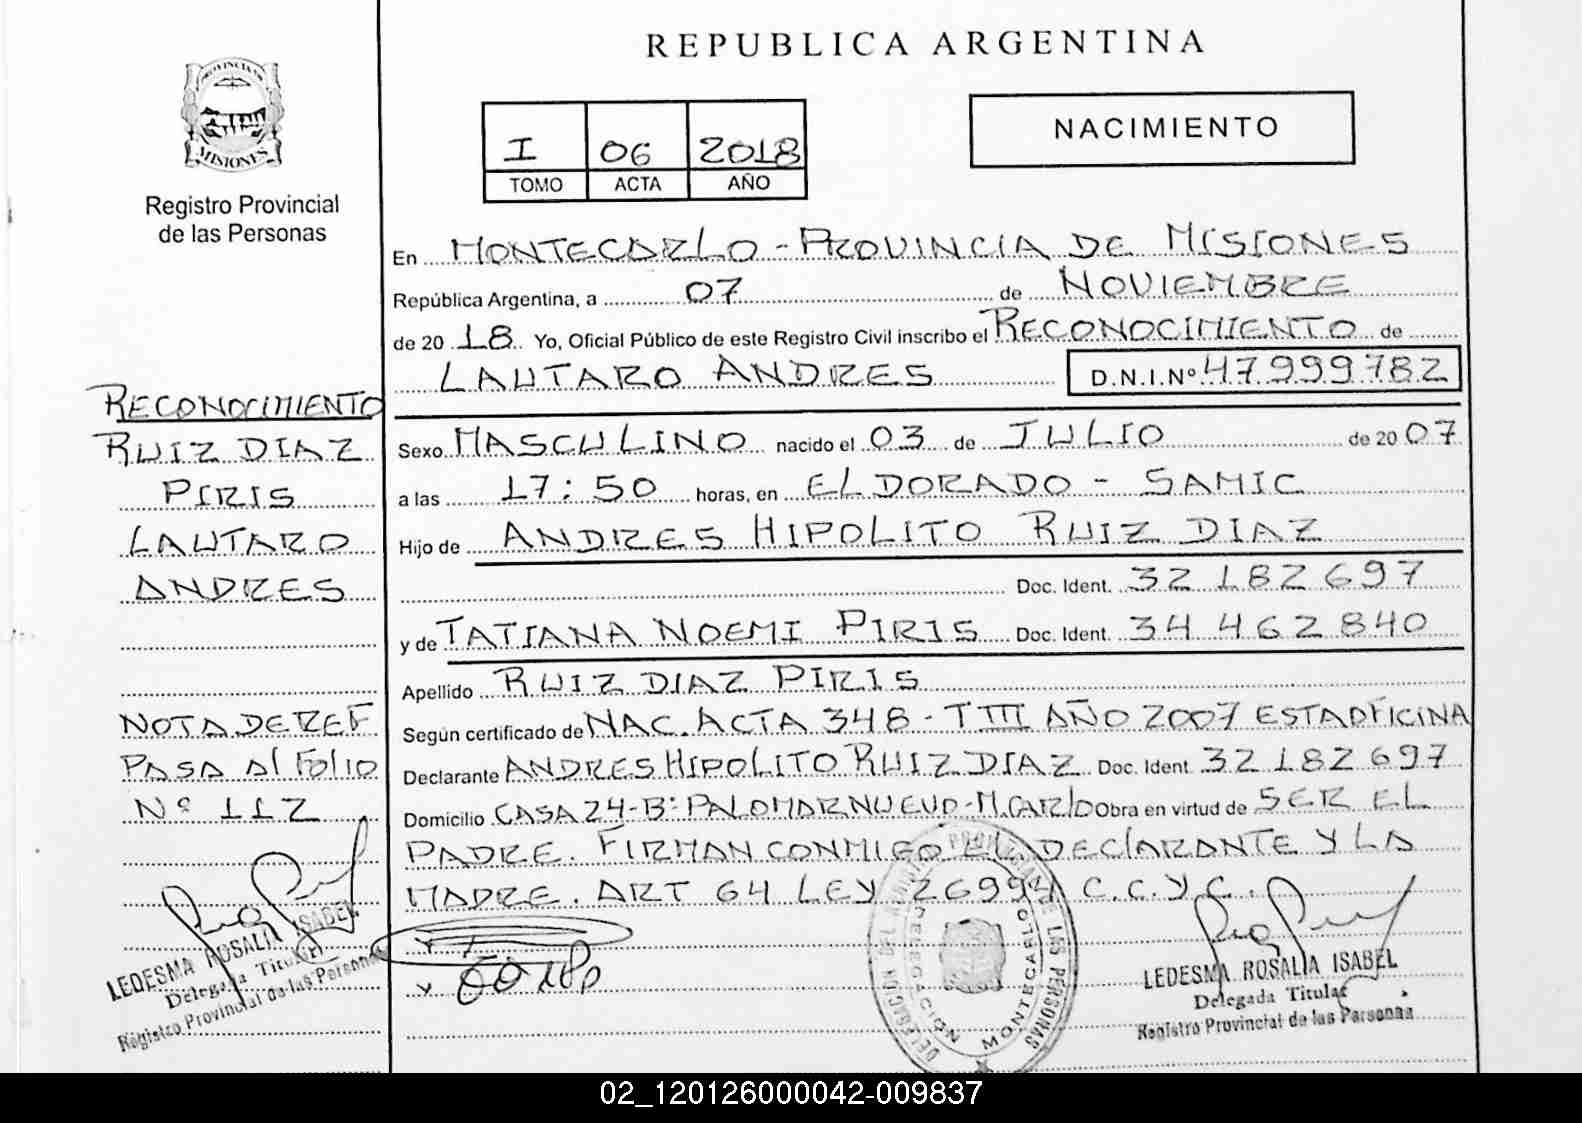 REPUBLICA ARGENTINA
PROVINCIA DE
MISIONES
Registro Provincial
de las Personas
I 06 2018
TOMO ACTA AÑO
NACIMIENTO
En MONTECARLO - PROVINCIA DE MISIONES
República Argentina, a 07 de NOVIEMBRE
de 20 18 Yo, Oficial Público de este Registro Civil inscribo el RECONOCIMIENTO de
LAUTARO ANDRES D.N.I.Nº 47999782
RECONOCIMIENTO
RUIZ DIAZ
PIRIS
LAUTARO
ANDRES
NOTA DE REF
PASA Al Folio
Nº 112
LEDESMA ROSALIA ISABEL
Delegada Titular
Registro Provincial de las Personas
Sexo MASCULINO nacido el 03 de JULIO de 20 07
a las 17:50 horas, en ELDORADO - SAMIC
Hijo de ANDRES HIPOLITO RUIZ DIAZ
Doc. Ident. 32 182 697
y de TATIANA NOEMI PIRIS Doc. Ident. 34 462 840
Apellido RUIZ DIAZ PIRIS
Según certificado de NAC. ACTA 348 - T III AÑO 2007 ESTA OFICINA
Declarante ANDRES HIPOLITO RUIZ DIAZ Doc. Ident 32 182 697
Domicilio CASA 24-Bº PALOMAR NUEVO-M.CARLO Obra en virtud de SER EL
PADRE. FIRMAN CONMIGO EL DECLARANTE Y LA
MADRE. ART 64 LEY 26994 C.C.Y C.
DELEGACION MONTECARLO
DE LAS PERSONAS
LEDESMA ROSALIA ISABEL
Delegada Titular
Registro Provincial de las Personas
02_120126000042-009837